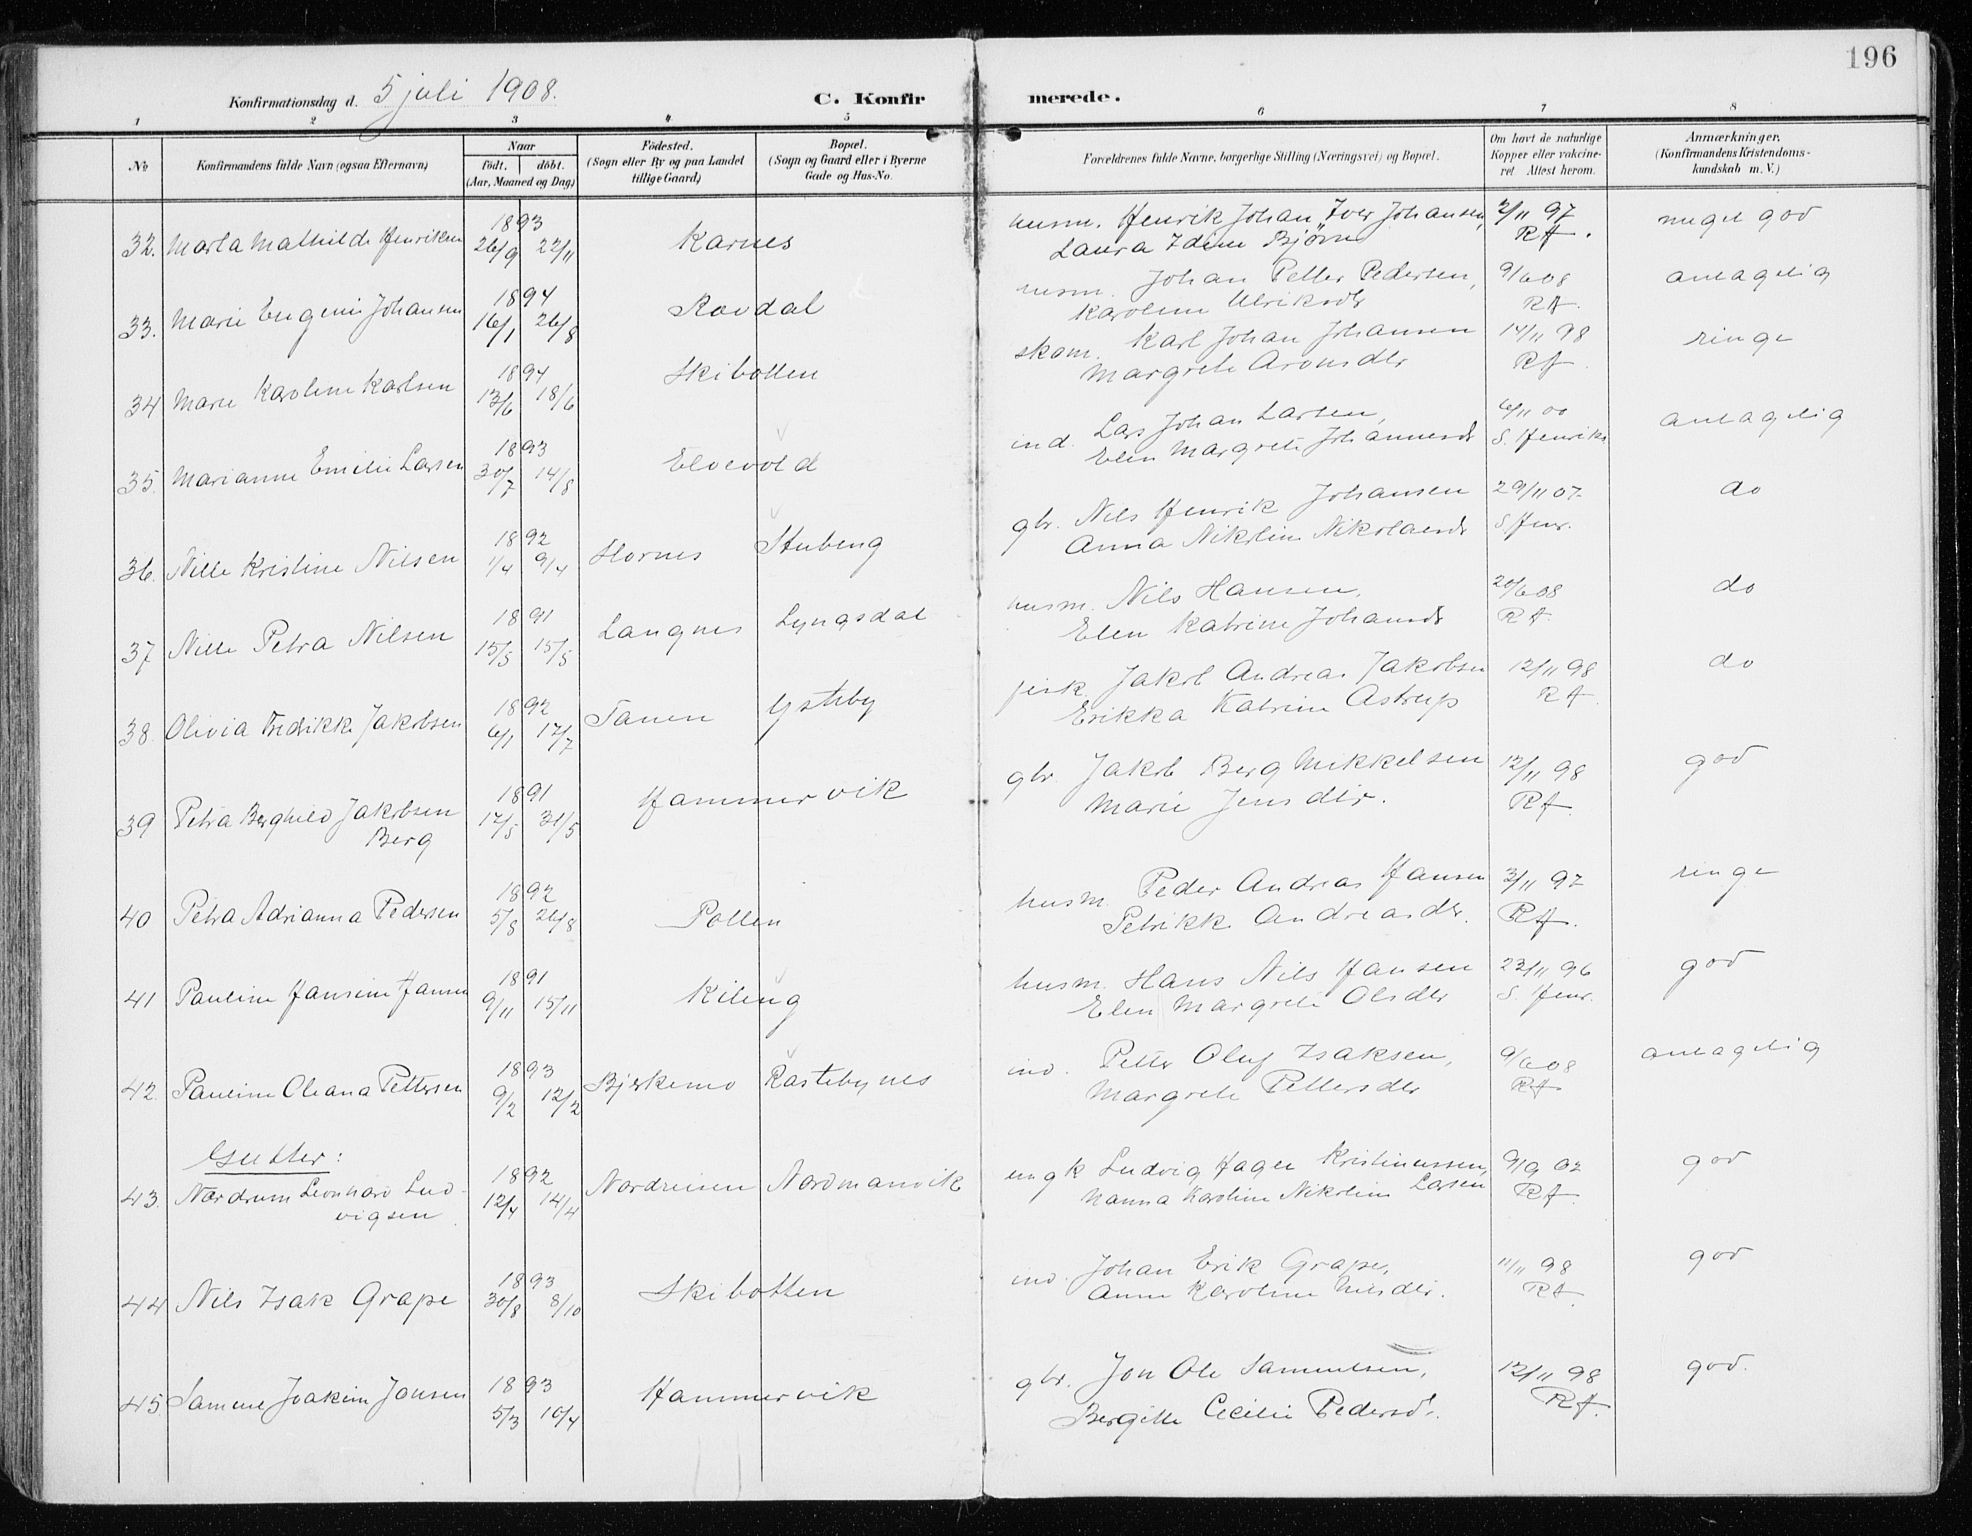 196
Konfirmationsdag d. 5 juli 1908. C. Konfirmerede.
1 2 3 4 5 6 7 8
No. Konfirmandens fulde Navn (ogsaa Efternavn) Naar födt. döbt. (Aar, Maaned og Dag) Födested. (Sogn eller By og paa Landet tillige Gaard) Bopæl. (Sogn og Gaard eller i Byerne Gade og Hus-No. Forældrenes fulde Navne, borgerlige Stilling (Næringsvei) og Bopæl. Om havt de naturlige Kopper eller vakcineret Attest herom. Anmærkninger. (Konfirmandens Kristendomskundskab m. V.)
1893 husm. Henrik Johan Iver Johansen, 2/11 97 meget god
32. Marta Mathilde Henriksen 26/9 22/11 Karnes Laura Idine Bjørn RA.
1894 husm. Johan Petter Pedersen, 9/6 08 antagelig
33. Marie Eugenie Johansen 16/1 26/8 Rovdal Karoline Ulriksdtr RA.
1894 skom. Karl Johan Johansen 14/11 98 ringe
34 Marie Karoline Karlsen 13/6 18/6 Skibotten Margrete Aronsdtr RA.
1893 ind. Lars Johan Larsen, 6/11 00 antagelig
35. Marianne Emilie Larsen 30/7 14/8 Elvevold Elen Margrete Johannesdt S. Henriks
1892 gbr. Nils Henrik Johansen 29/11 07 do
36. Nille Kristine Nilsen 1/4 9/4 Hornes Stubeng Anna Nikoline Nikolaisdt S. Henr.
1891 husm. Nils Hansen, 20/6 08 do
37 Nille Petra Nilsen 15/5 15/5 Langnes Lyngsdal Elen Katrine Johansdt RA.
1892 fisk. Jakob Andreas Jakobsen 12/11 98 do
38. Olivia Fredrikke Jakobsen 6/1 17/7 Tanen Ysteby Erikka Katrine Astrup RA.
1891 gbr. Jakob Berg Mikkelsen 12/11 98 god
39 Petra Berghild Jakobsen Berg 17/5 31/5 Hammervik Marie Jensdtr. RA.
1892 husm. Peder Andreas Hansen 3/11 97 ringe
40 Petra Adrianna Pedersen 5/8 26/8 Pollen Petrikke Andreasdtr. RA.
1891 husm. Hans Nils Hansen 23/11 96 god
41 Pauline Hansine Hansen 9/11 15/11 Kileng Elen Margrete Olsdtr S. Henr.
1893 ind. Petter Oluf Isaksen, 9/6 08 antagelig
42. Pauline Oleana Pettersen 9/2 12/2 Bjerkemo Rastebynes Margrete Pettersdtr RA
Gutter:
1892 ungk Ludvig Hagen Kristinussen, 9/9 02 god
43. Nordrum Leonhard Ludvigsen 12/4 14/4 Nordreisen Nordmanvik Nanna Karoline Nikoline Larsen RA.
1893 ind. Johan Erik Grape, 11/11 98 god
44 Nils Isak Grape 30/8 8/10 Skibotten Anne Karoline Nilsdtr. RA.
1893 gbr. Jon Ole Samuelsen, 12/11 98 god.
45. Samuel Joakim Jonsen 5/3 10/4 Hammervik Bergitte Cecilie Pedersd. RA.